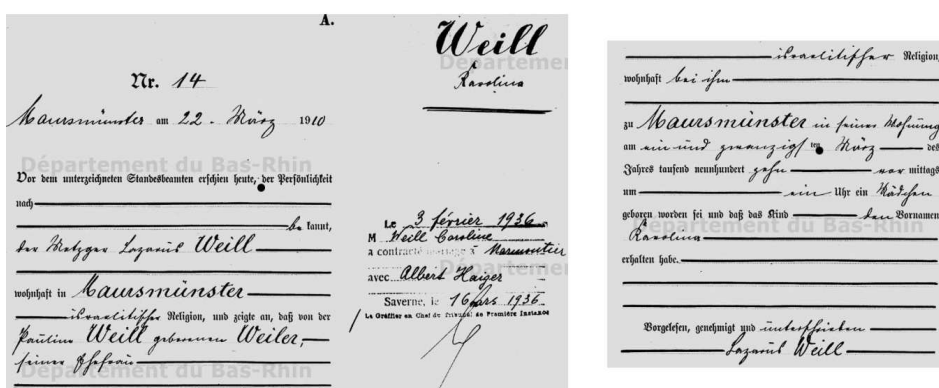 A.
Weill
Karolina
Nr. 14
Maursmünster am 22. März 1910
Département du Bas-Rhin
Vor dem unterzeichneten Standesbeamten erschien heute, der Persönlichkeit
nach
be kannt,
der Metzger Lazarus Weill
wohnhaft in Maursmünster
israelitischer Religion, und zeigte an, daß von der
Pauline Weill geborenen Weiler,
seiner Ehefrau
Département du Bas-Rhin
Le 3 février 1936
M Weill Caroline
a contracté mariage à Marmoutier
avec Albert Haiger
Saverne, le 16 mars 1936
Le Greffier en Chef du Tribunal de Première Instance
israelitischer Religion,
wohnhaft bei ihm
zu Maursmünster in seiner Wohnung
am ein und zwanzigsten März des
Jahres tausend neunhundert zehn vor mittags
um ein Uhr ein Mädchen
geboren worden sei und daß das Kind den Vornamen
Département du Bas-Rhin
Karolina
erhalten habe.
Vorgelesen, genehmigt und unterschrieben
Lazarus Weill